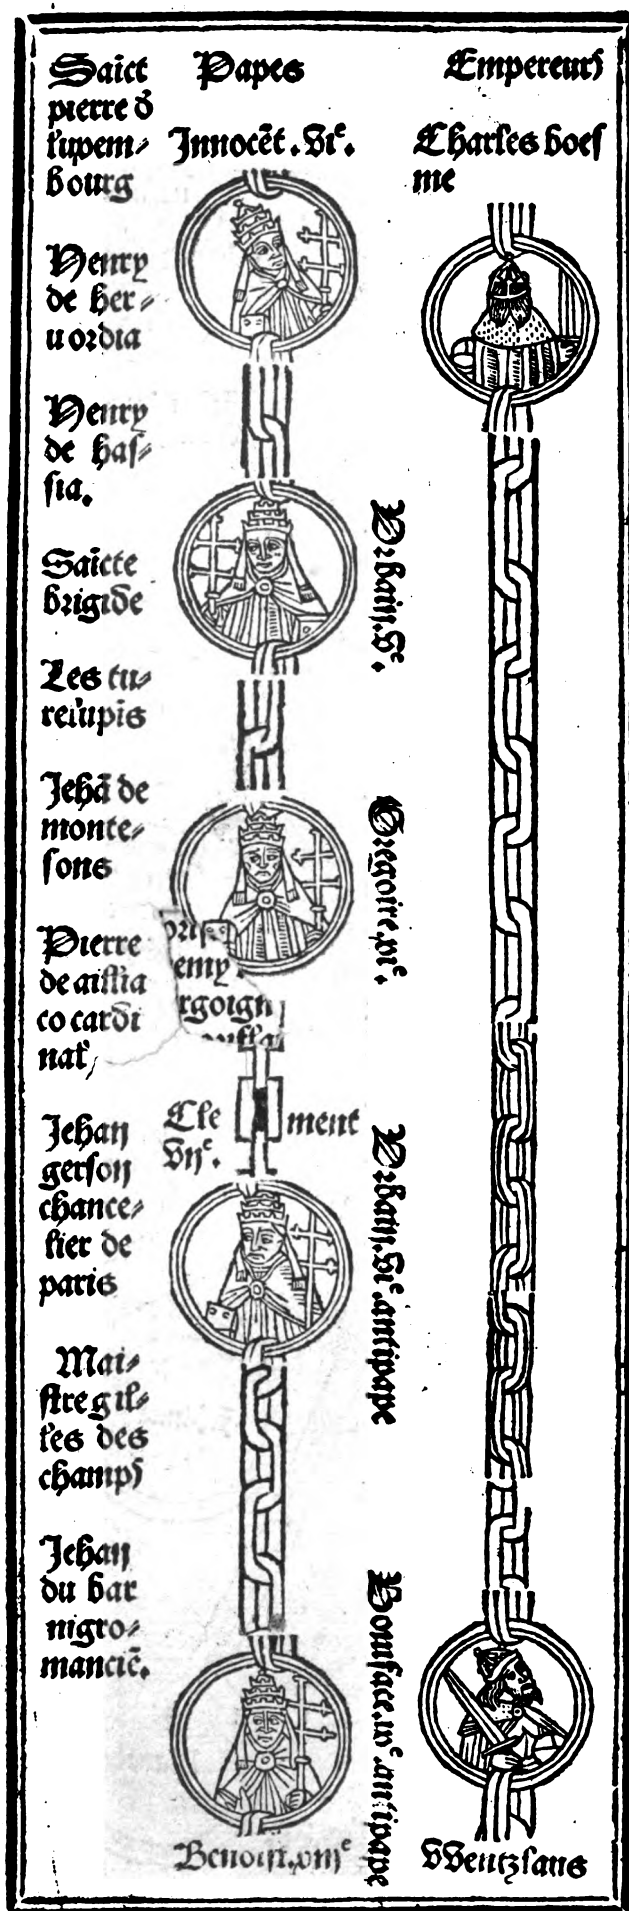 Saict
pierre d̄
lupem⸗
bourg
Henry
de her⸗
uordia
Henry
de haſ⸗
ſia.
Saicte
brigide
Les tu⸗
relupis
Jehā de
monte⸗
ſons
Pierre
de aillia
co cardi
nal,
Jehan
gerſon
chance⸗
lier de
paris
Mai⸗
ſtre gil⸗
les des
champs
Jehan
du bar
nigro⸗
manciē.
Papes
Innocēt. viᵉ.
Urbain. vᵉ.
Gregoire. xiᵉ.
emy
rgoign
Cle ment
viiᵉ.
Urbain. viᵉ. antipape
Boniface. ixᵉ. antipape
Benoiſt. xiiiᵉ
Empereurs
Charles boeſ
me
Wentzlaus